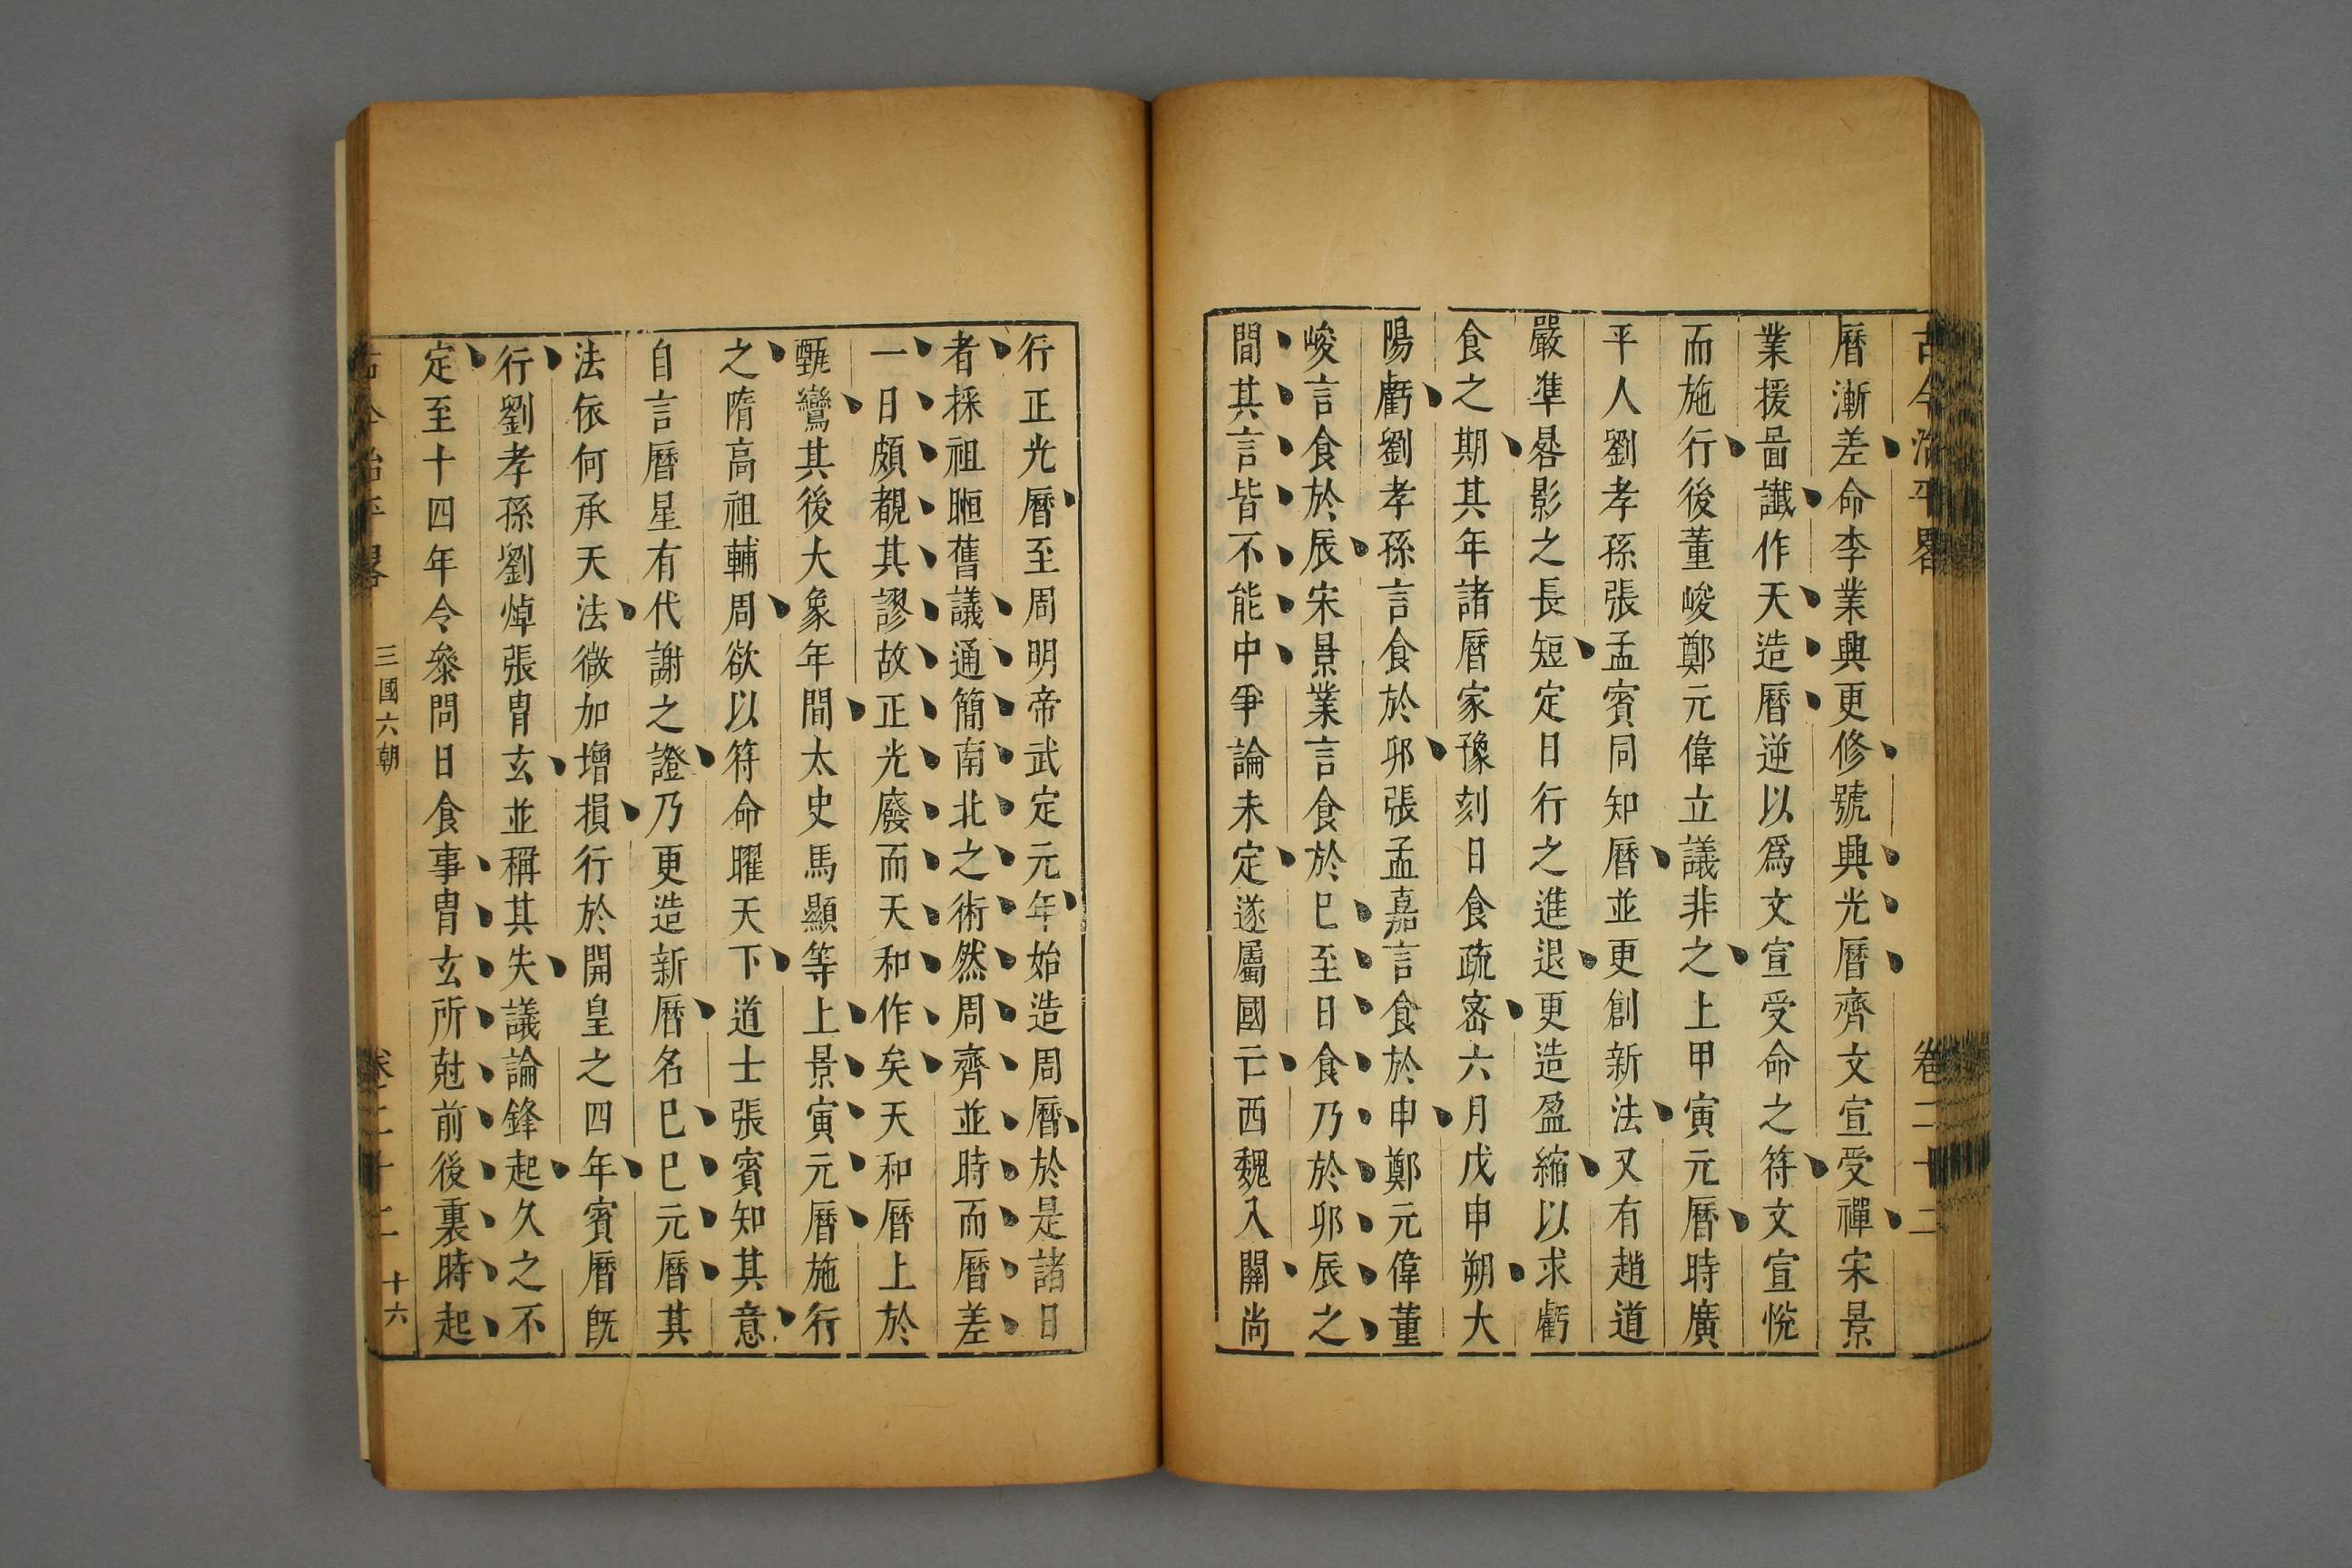 古今治平畧 卷二十二
曆漸差命李業興更修號興光曆齊文宣受禪宋景
業援啚讖作天造曆逆以爲文宣受命之符文宣悅
而施行後董峻鄭元偉立議非之上甲寅元曆時廣
平人劉孝孫張孟賓同知曆並更創新法又有趙道
嚴準晷影之長短定日行之進退更造盈縮以求虧
食之期其年諸曆家豫刻日食疏宻六月戊申朔大
陽虧劉孝孫言食於卯張孟嘉言食於申鄭元偉董
峻言食於辰宋景業言食於巳至日食乃於卯辰之
間其言皆不能中爭論未定遂屬國亡西魏入關尚
行正光曆至周明帝武定元年始造周曆於是諸日
者採祖暅舊議通簡南北之術然周齊並時而曆差
一日頗覩其謬故正光廢而天和作矣天和曆上於
甄鸞其後大象年間太史馬顯等上景寅元曆施行
之隋高祖輔周欲以符命曜天下道士張賓知其意
自言曆星有代謝之證乃更造新曆名巳巳元曆其
法依何承天法微加增損行於開皇之四年賓曆既
行劉孝孫劉焯張胄玄並稱其失議論鋒起久之不
定至十四年令叅問日食事胄玄所尅前後裏時起
古今治平畧 三國六朝 卷二十二 十六